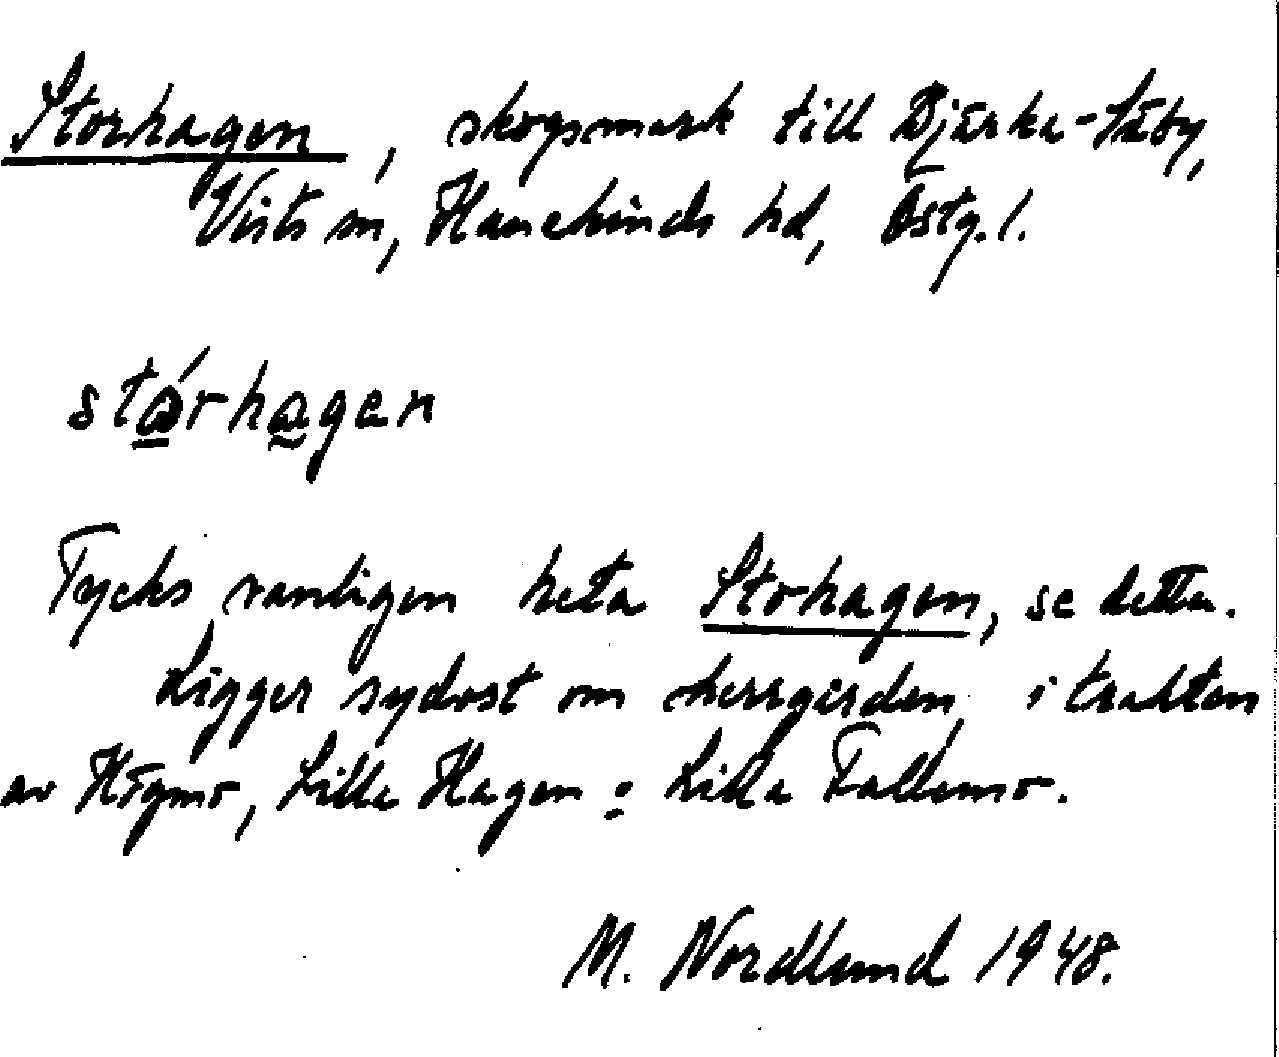 Storhagen, skogsmark till Bjärka-Säby,
Vists sn, Hanekinds hd, Östg. l.
stǻrhagen
Tycks vanligen heta Storhagen, se detta.
Ligger sydost om herrgården, i trakten
av Högmo, Lilla Hagen o. Lilla Fallemo.
M. Nordlund 1948.